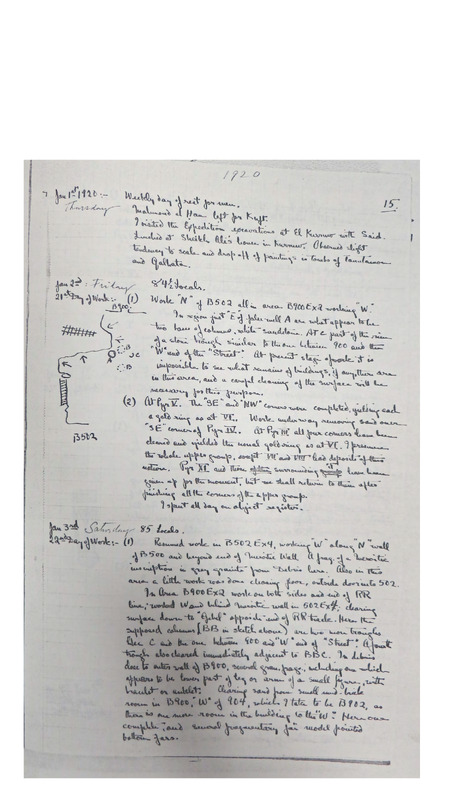 1920
15.
Jan 1st 1920:- Weekly day of rest for men.
Thursday Mahmoud el Han left for Kuft.
I visited the Expedition excavations at El Kurnur with Said.
Lunched at Sheikh Ali's house in Kurnur. Observed slight
tendency to scale and drop off of paintings in tombs of
and
Jan 2nd: Friday 84½ locals.
21st Day of Work:- (1) Work "N" of B502 all in area B900Ex2 working "W".
B900
In region just "E" of pier wall A are what appear to be
two bases of columns, white sandstone. At C part of the rim
of a stone trough similar to the one between 900 and the
"W" end of the "Street". At present stage of work it is
impossible to see what remains of buildings, if any, there are
in this area, and a careful cleaning of the surface will be
necessary for this purpose.
A
B
C
B
B502
(2) At Pyr V. The "SE" and "NW" corners were completed, yielding each
a gold ring as at VI. Work under way removing sand over
"SE" corner of Pyr IV. At Pyr III all four corners have been
cleared and yielded the usual gold ring as at VI. I presume
the whole upper group, except VII and VIII had deposits of this
nature. Pyr XI and those surrounding have been
given up for the moment, but we shall return to them after
finishing all the corners of the upper group.
I spent all day on object register.
Jan 3rd Saturday 85 locals.
22nd Day of Work:- (1) Resumed work in B502Ex4, working "W" along "N" wall
of B500 and beyond end of Meroitic Wall. A frag. of a Meroitic
inscription in grey granite from debris here. Also in this
area a little work was done clearing floor, outside door into 502.
In Area B900Ex2 work on both sides and end of RR
line; worked W and behind Meroitic wall in 502Ex4, clearing
surface down to "Gebel" opposite end of RR track. Here the
supposed columns (BB in sketch above) are two more troughs
like C and the one between 900 and "W" end of "Street". A fourth
trough also cleared immediately adjacent to BBC. In debris
close to outer wall of B900, several gran. frags., including one which
appears to be lower part of leg or arm of a small figure, with
bracelet or anklet. Clearing sand from small mud-brick
room in B900, "W" of 904, which I take to be B902, as
there is one more room in the building to the "W". Here one
complete, and several fragmentary jars model pointed
bottom jars.